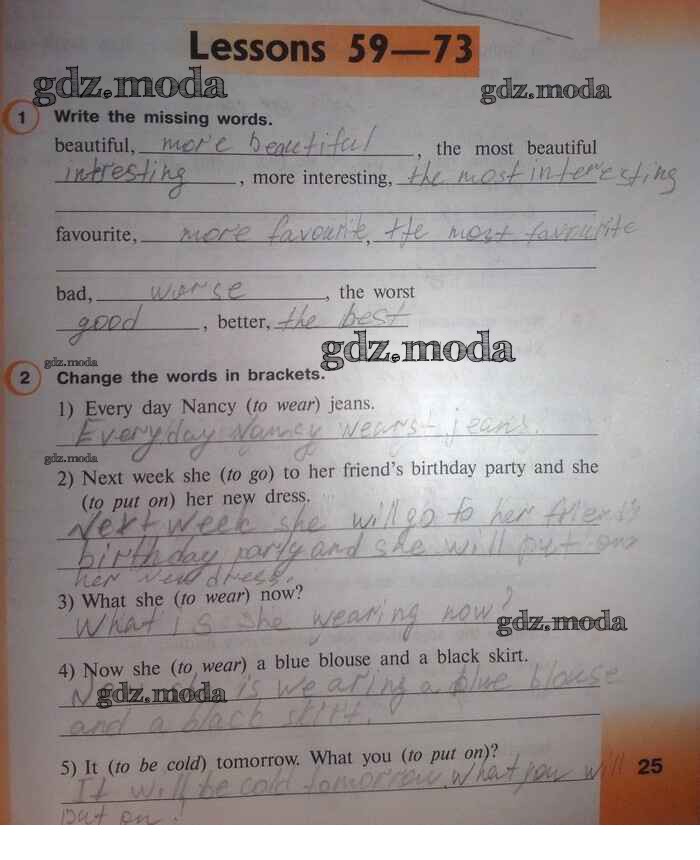 Lessons 59—73
gdz.moda gdz.moda
1 Write the missing words.
beautiful, more beautiful, the most beautiful
intresting, more interesting, the most interesting
favourite, more favourite, the most favourite
bad, worse, the worst
good, better, the best
gdz.moda
gdz.moda
2 Change the words in brackets.
1) Every day Nancy (to wear) jeans.
Every day Nancy wears jeans.
gdz.moda
2) Next week she (to go) to her friend's birthday party and she
(to put on) her new dress.
Next week she will go to her friend's
birthday party and she will put on
her new dress.
3) What she (to wear) now?
What is she wearing now?
gdz.moda
4) Now she (to wear) a blue blouse and a black skirt.
she is wearing a blue blouse
gdz.moda
and a black skirt.
5) It (to be cold) tomorrow. What you (to put on)?
It will be cold tomorrow. What you will
put on?
25